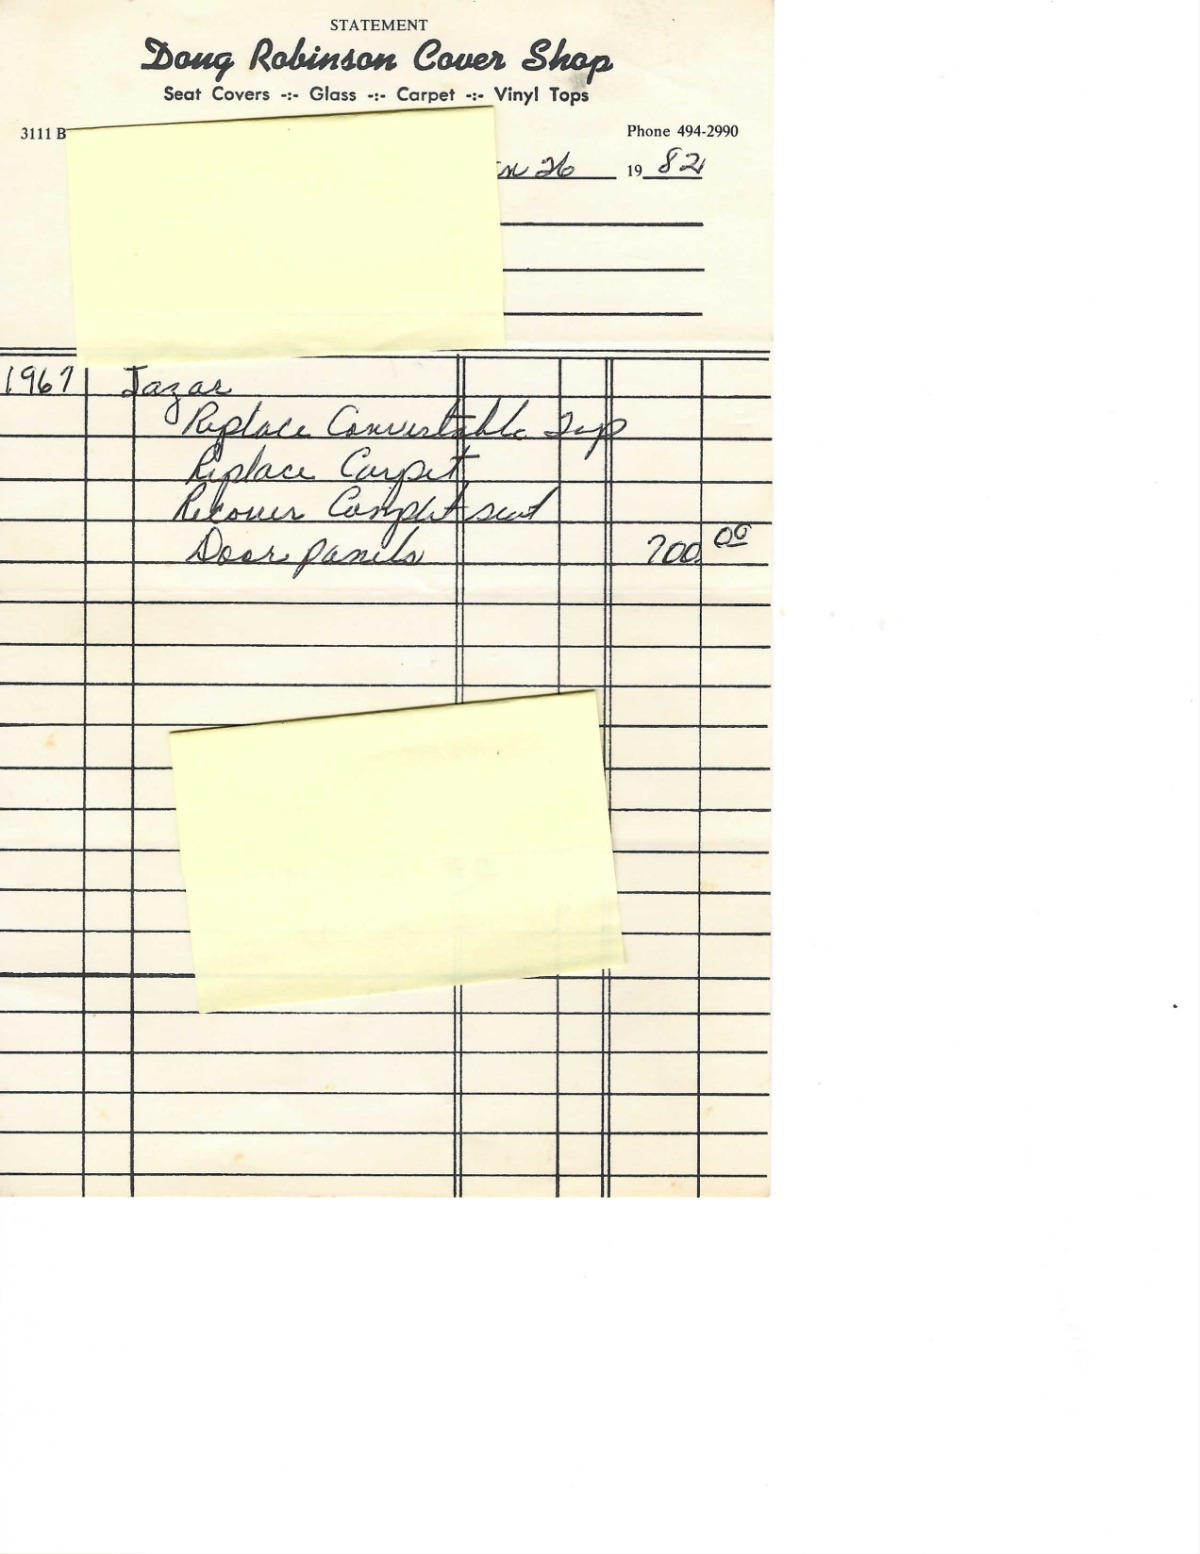 STATEMENT
Doug Robinson Cover Shop
Seat Covers -:- Glass -:- Carpet -:- Vinyl Tops
3111 B Phone 494-2990
26 19 82
1967 Jazar
Replace Convertable Top
Replace Carpet
Recover Complet seat
Door panels 700.00